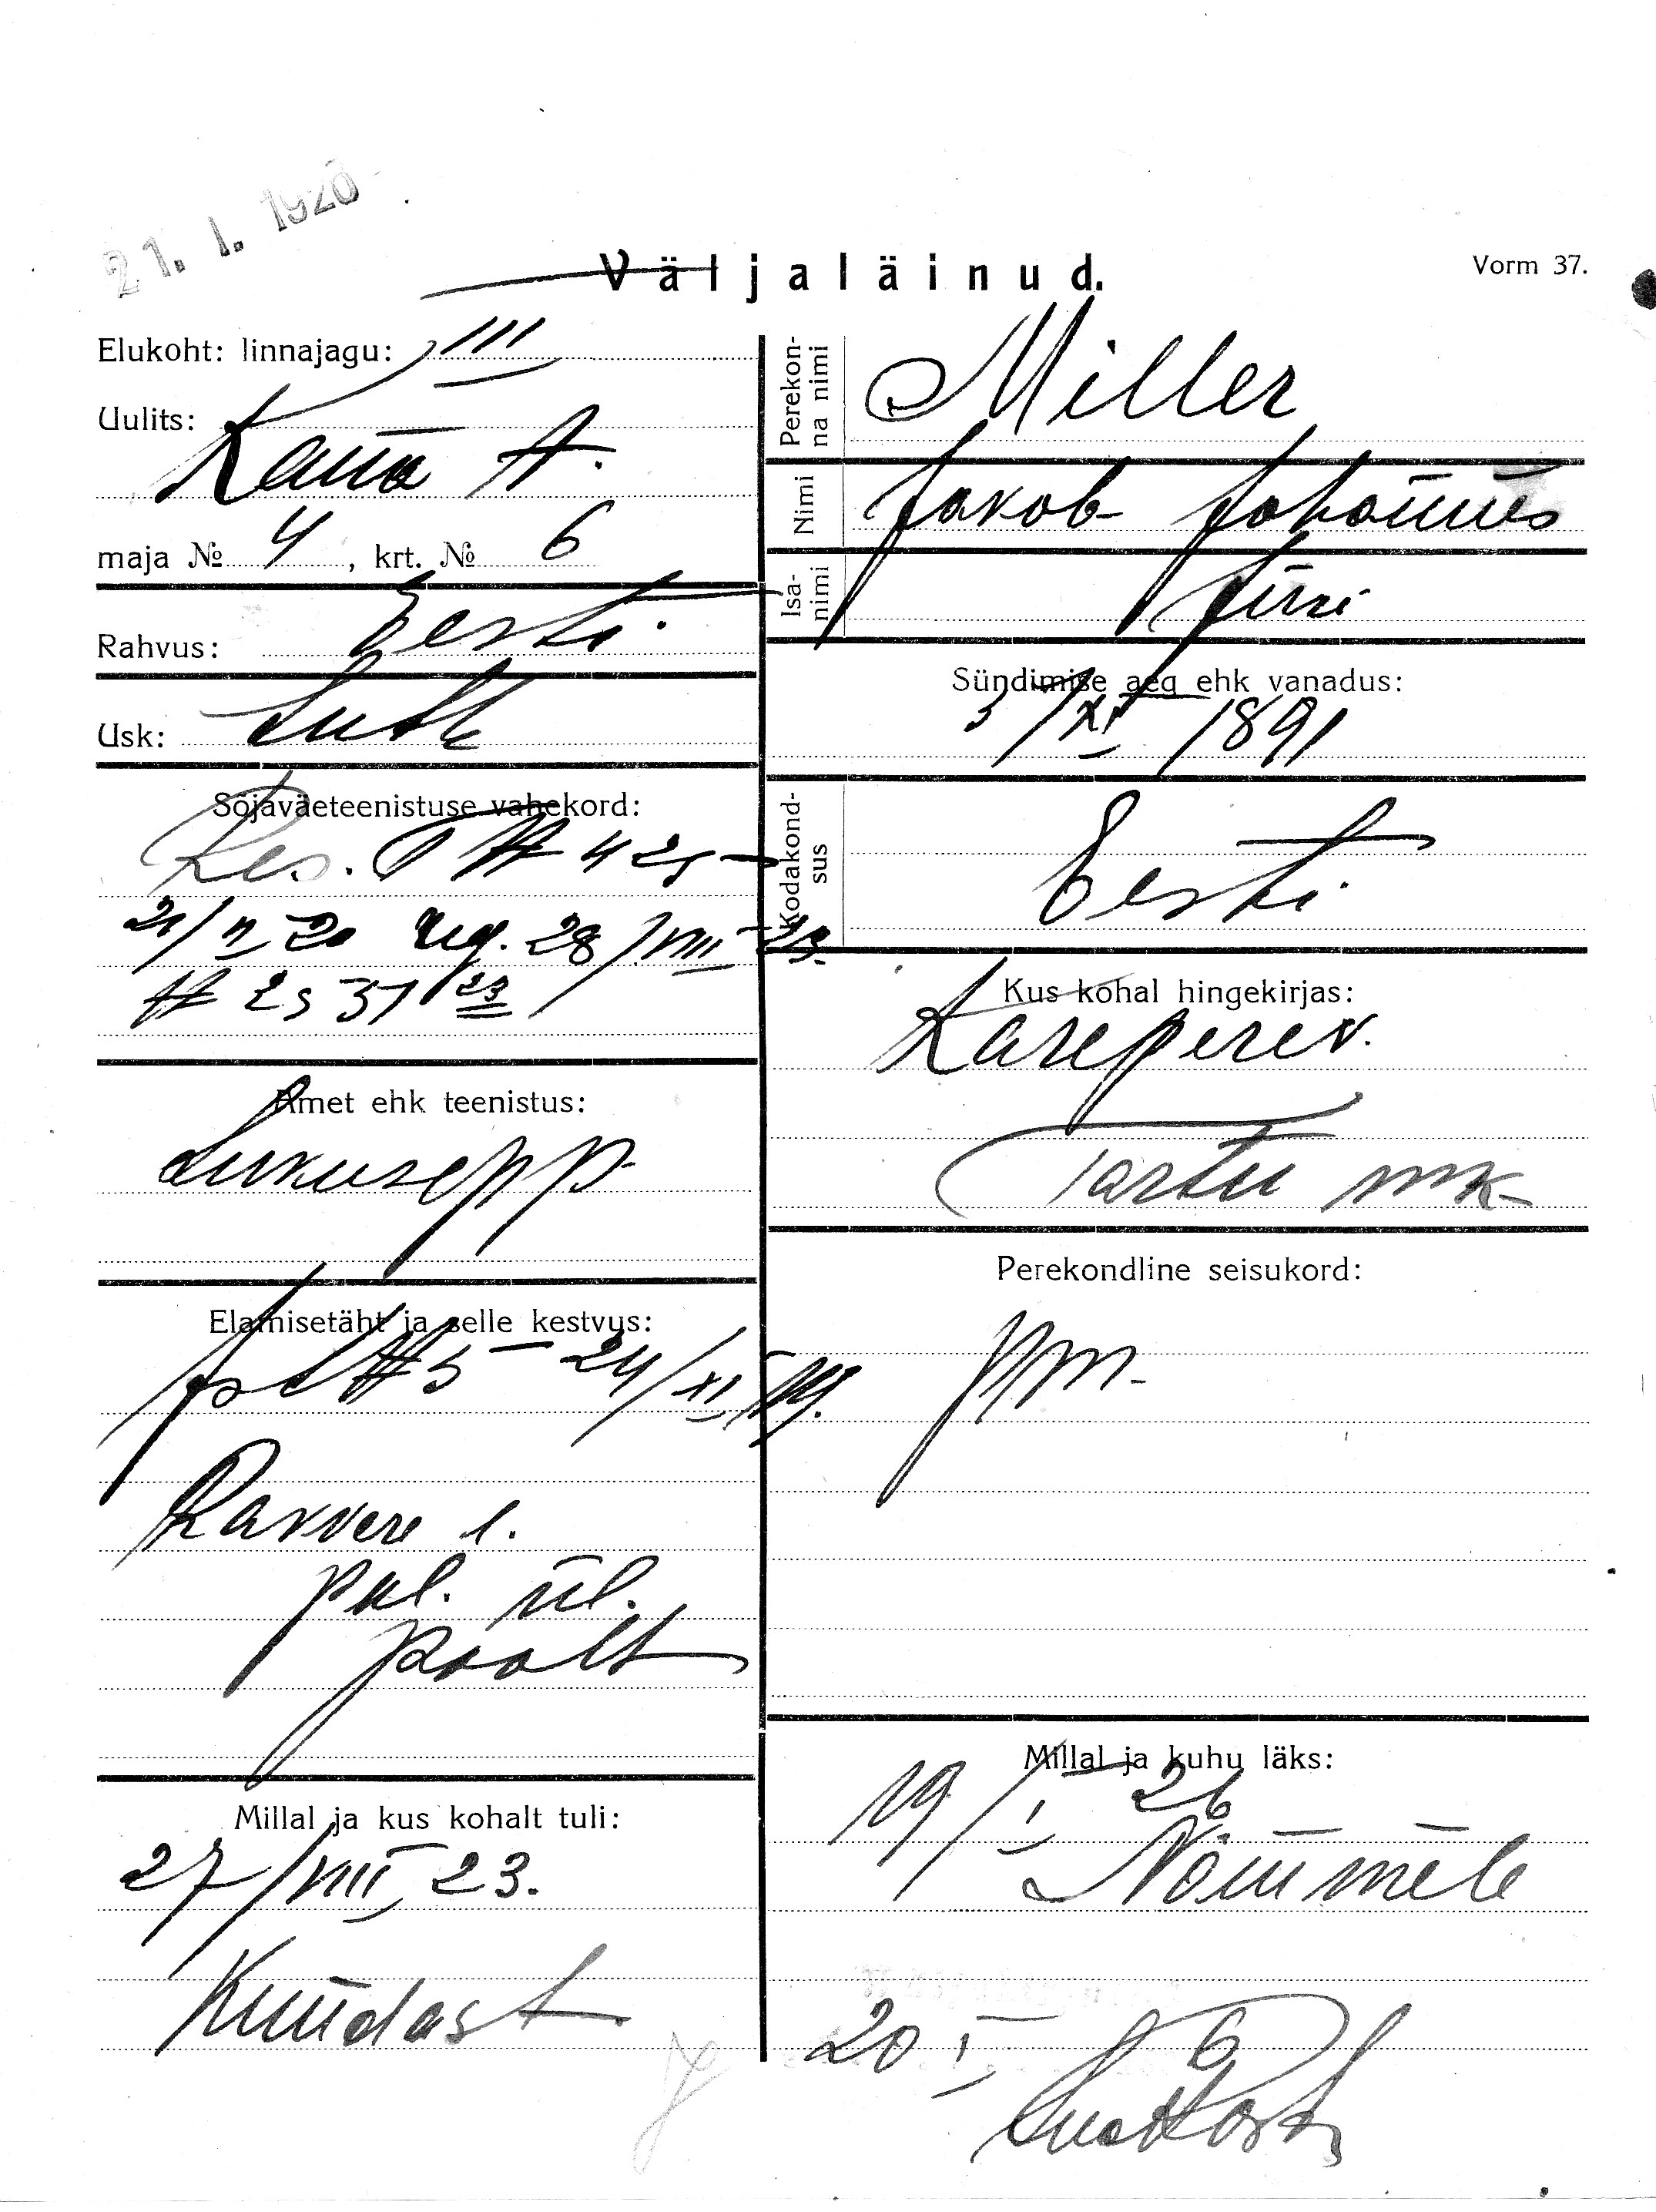 21. 1. 1926
Väljaläinud.
Vorm 37.
Elukoht: linnajagu: III
Uulits:
Kanna A.
maja № 4, krt. № 6
Rahvus: Eesti
Usk: Luth
Sõjaväeteenistuse vahekord:
Res. T # 425
21/II 20 reg. 28/VIII 23.
# 2531 23
Amet ehk teenistus:
Lukusepp
Elamisetäht ja selle kestvus:
# 5 24/XI 19.
Rakvere l.
pol. ül.
poolt
Millal ja kus kohalt tuli:
27/VIII 23.
Kundast
Perekonna nimi
Miller
Nimi
Jakob Johannes
Isanimi
Jüri
Sündimise aeg ehk vanadus:
3/XI 1891
Kodakondsus
Eesti
Kus kohal hingekirjas:
Karepere v.
Tartu mk
Perekondline seisukord:
pm.
Millal ja kuhu läks:
19/I 26
Nõmmele
20 I 6